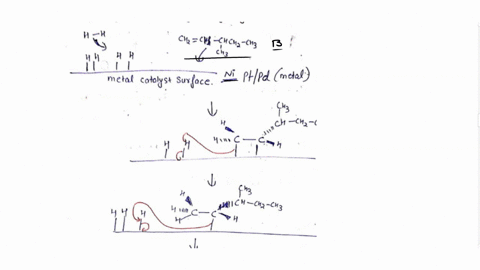 H-H
CH2=CH-CH-CH2-CH3 B
CH3
H H H H
metal catalyst surface. Ni Pt/Pd (metal)
CH3
H CH-CH2-C
H C-C
H H H
CH3
H CH-CH2-CH3
H C-C
H H H H H